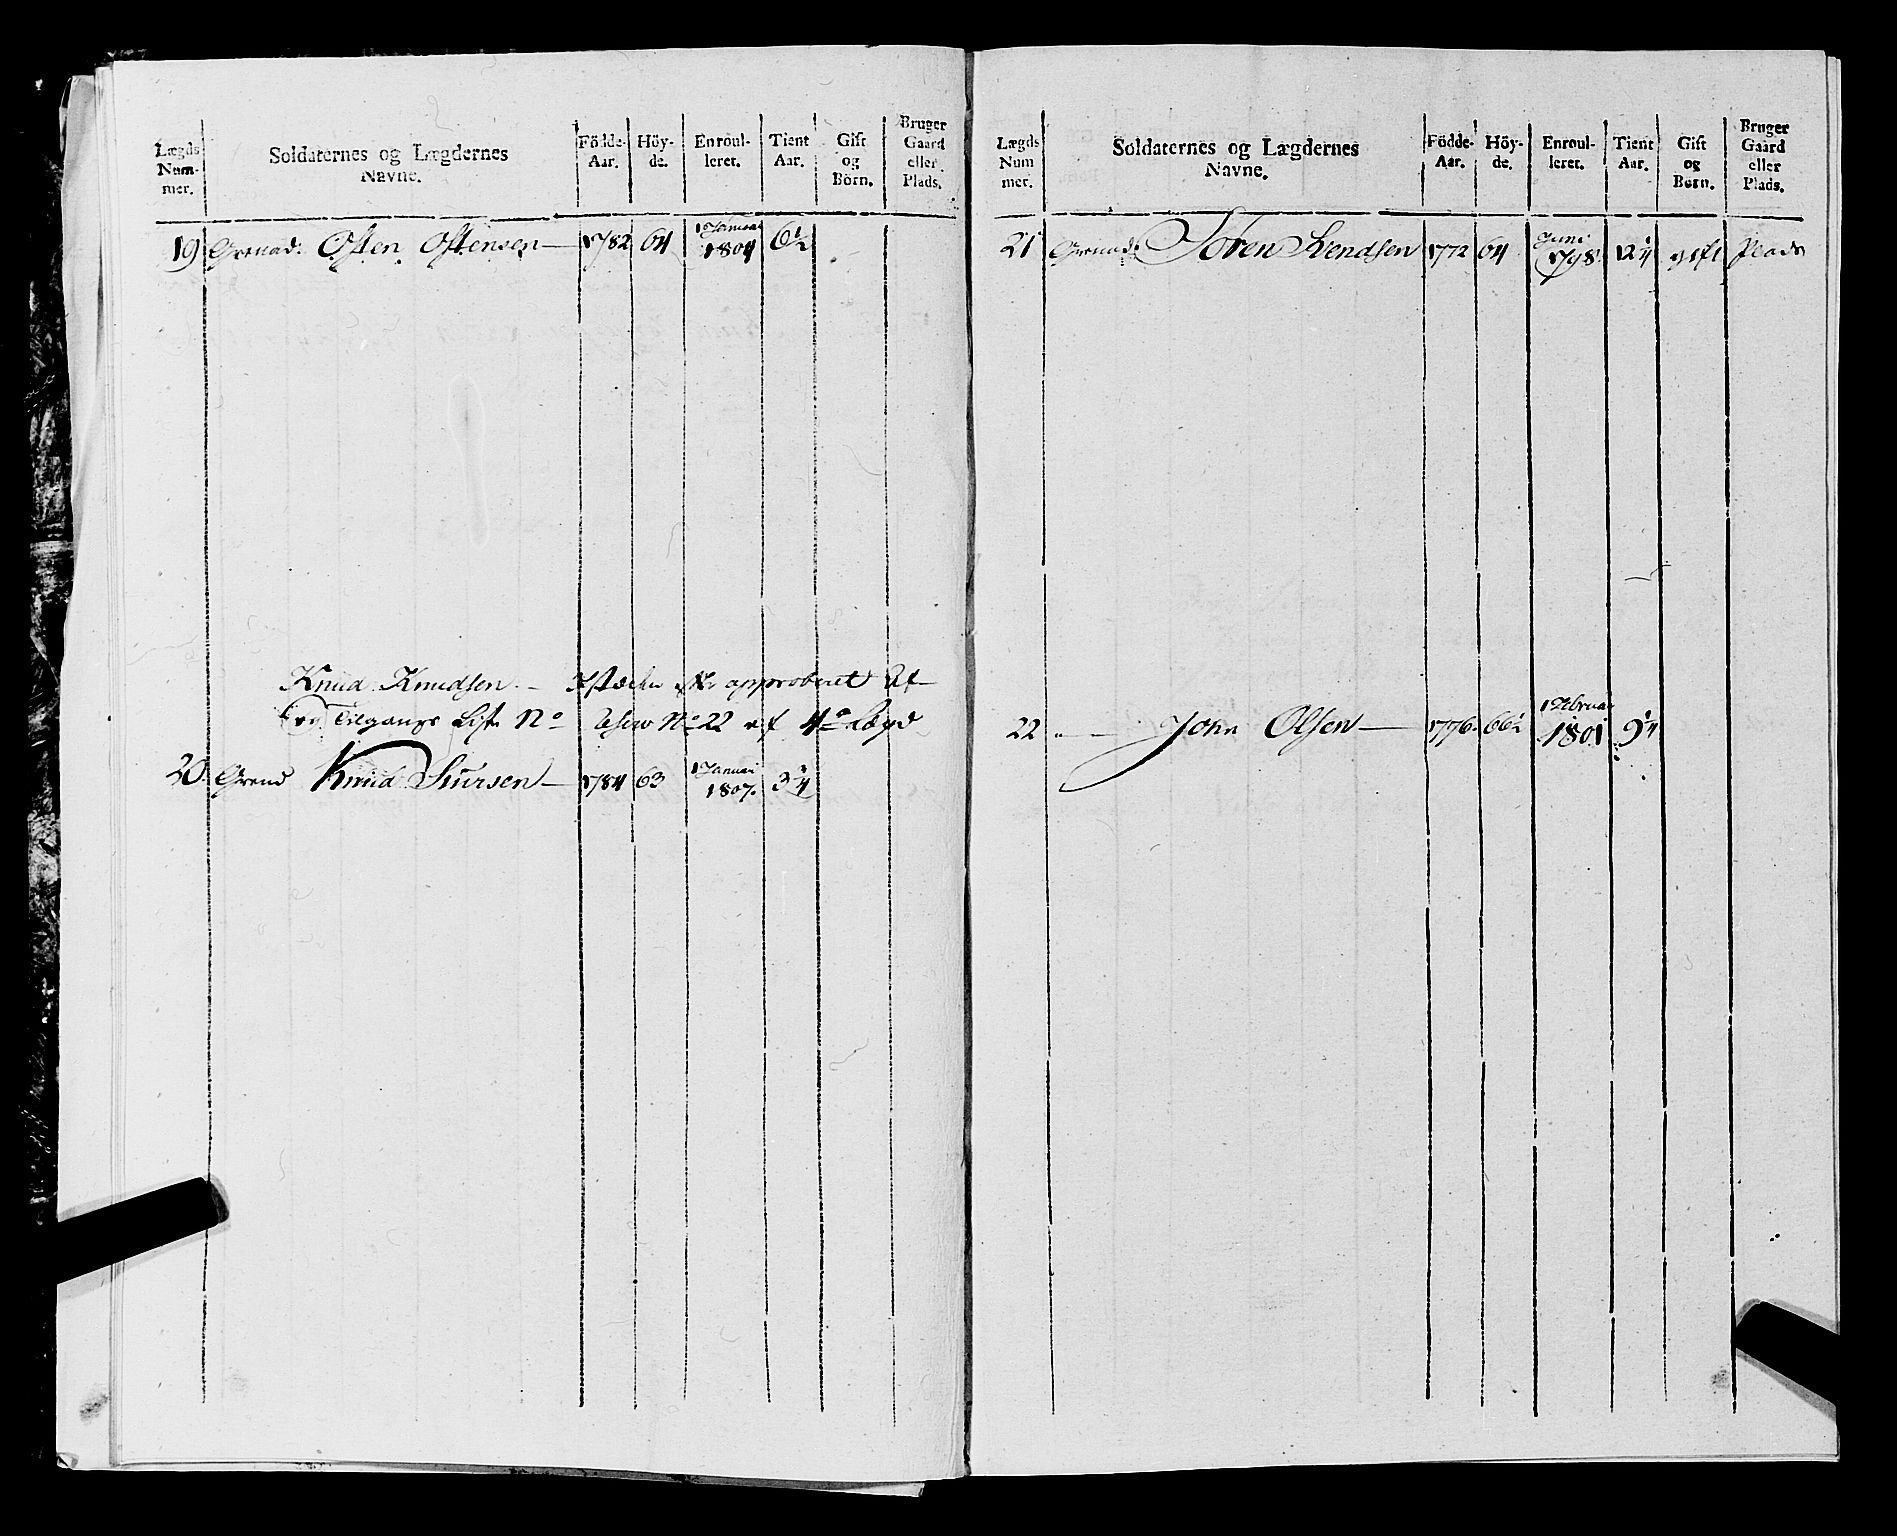 Lægds Num- mer.
Soldaternes og Lægdernes Navne.
Födde- Aar.
Höy- de.
Enroul- leret.
Tient Aar.
Gift og Börn.
Bruger Gaard eller Plads.
19 Grenad: Osten Ostensen — 1782 64 1 Januar 1804 6½
Knud Knudsen — approberet
Tilgangs Liste No No 22 af 4de Lægd
20 Grend Knud Siursen — 1784 63 1 Januar 1807. 3¼
Lægds Num mer.
Soldaternes og Lægdernes Navne.
Födde- Aar.
Höy- de.
Enroul- leret.
Tient Aar.
Gift og Børn.
Bruger Gaard eller Plads.
21 Grenad: Soren Svendsen 1772 64 Juni 1798. 12¼ gift Plads
22 " — John Olsen — 1776. 66½ 1 Februar 1801 9¼